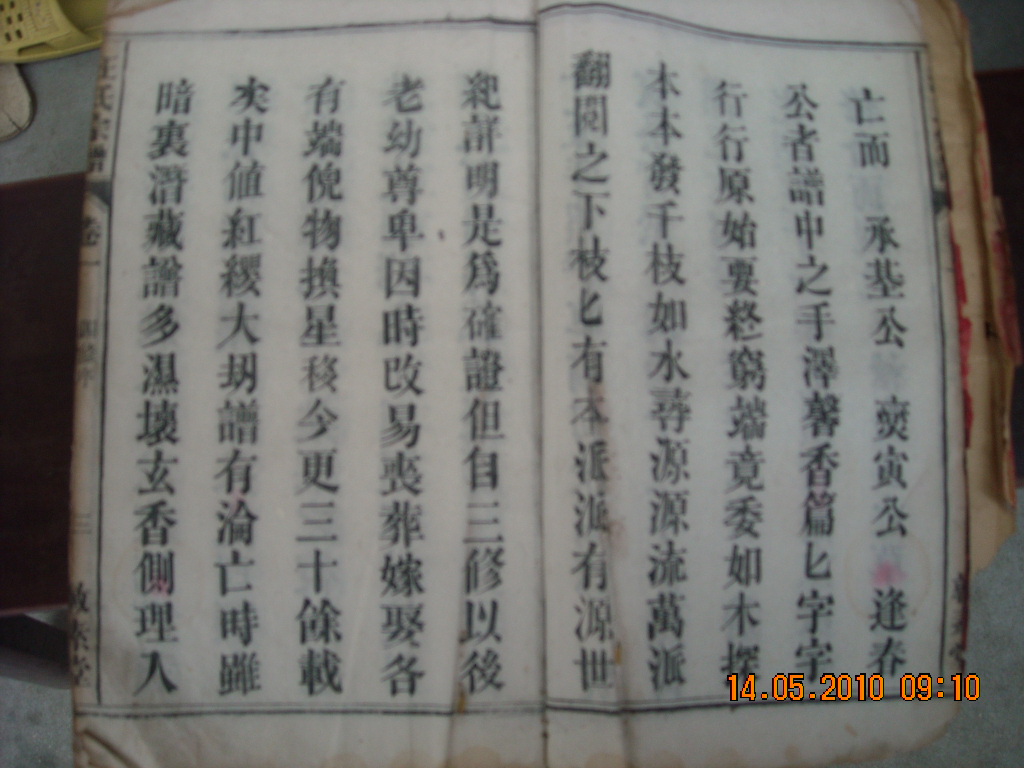 亡而 承基公 奭寅公 逢春
公者譜中之手澤馨香篇匕字字
行行原始要終窮端竟委如木探
本本發千枝如水尋源源流萬派
翻閱之下枝匕有本派派有源世
紀詳明是為確證但自三修以後
老幼尊卑因時改易喪葬嫁娶各
有端倪物換星移今更三十餘載
矣中值紅纓大刼譜有淪亡時雖
暗裏潛藏譜多濕壞玄香側理入
氏宗譜
卷一
三
14.05.2010 09:10